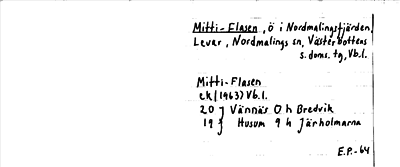 Mitti-Flasen, ö i Nordmalingsfjärden,
Levar, Nordmalings sn, Västerbottens
s. doms. tg, Vb.l.
Mitti-Flasen
ek (1963) Vb.l.
20 } Vännäs 0 h Bredvik
19 } Husum 9 h Järholmarna
E.P.-64